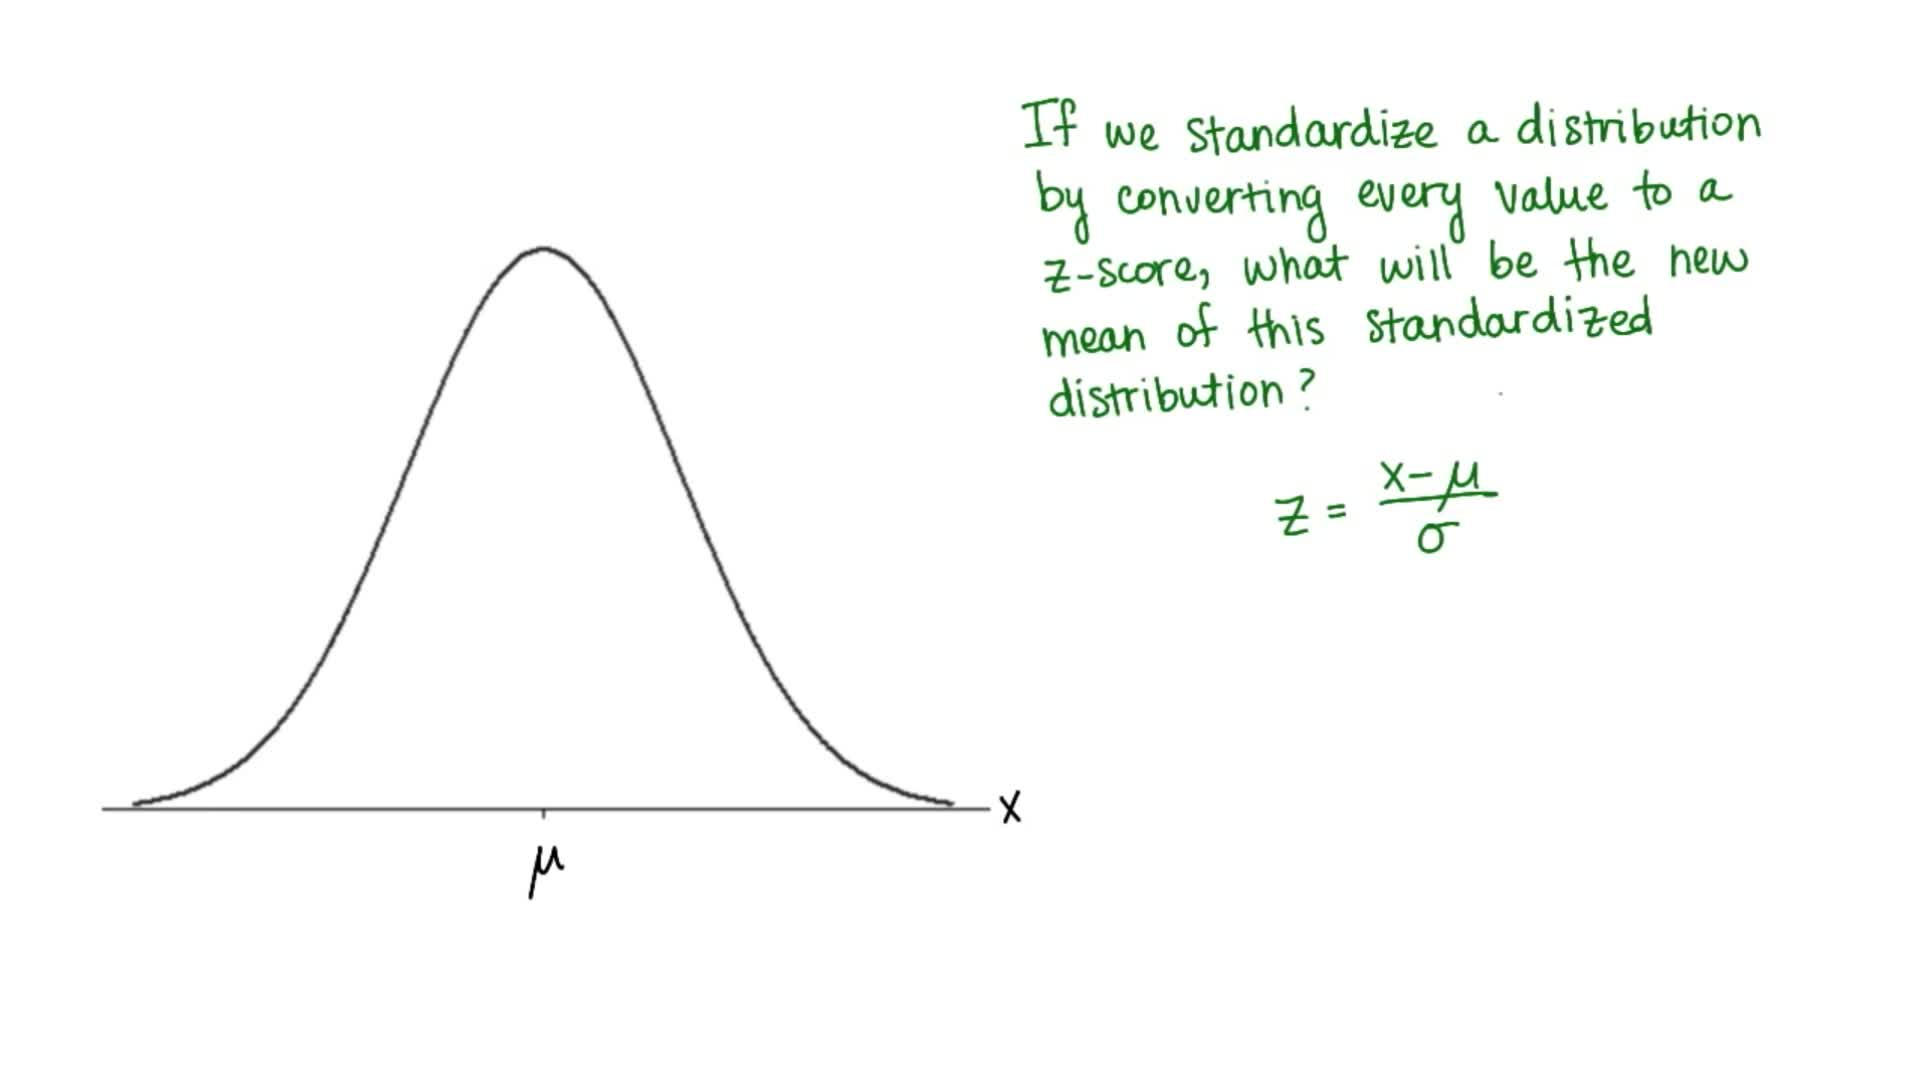 If we standardize a distribution
by converting every value to a
z-score, what will be the new
mean of this standardized
distribution?
z = x-μ / σ
x
μ